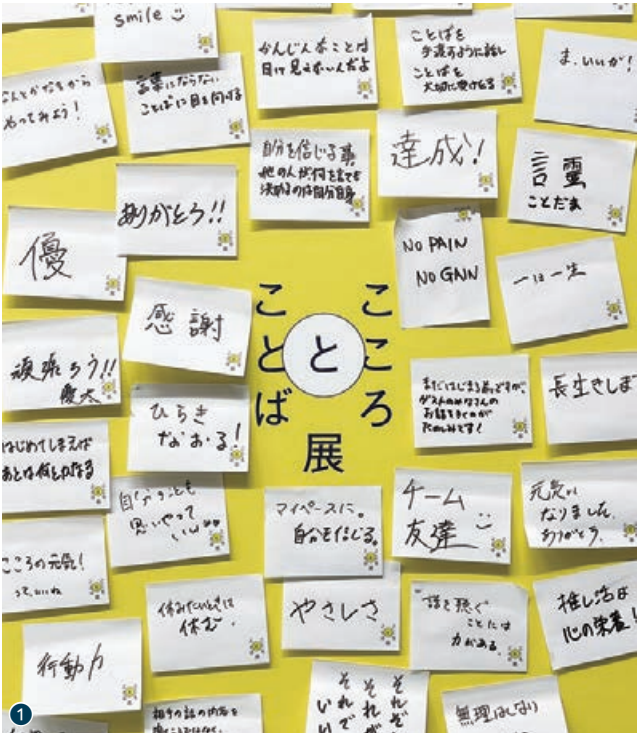 smile
かんじんなことは
目に見えないんだよ
ことばを
手渡すように話し
ことばを
大切に受けとる
ま、いいか！
なんとかなるから
やってみよう！
言葉にならない
ことばに目を向ける
自分を信じる事
他の人が何を言っても
決めるのは自分自身
達成！
言霊
ことだま
ありがとう!!
優
NO PAIN
NO GAIN
一日一生
感謝
こころ
と
ことば
展
頑張ろう!!
優大
ひらき
なおる！
まだはじまる前ですが、
ゲストのみなさんの
お話をきくのが
たのしみです！
長生きしま
はじめてしまえば
あとは何とかなる
自分のことも
思いやって
いい
マイペースに。
自分を信じる。
チーム
友達
元気に
なりました
ありがとう。
こころの元気！
って、いいね
休みたいときは
休む。
やさしさ
話を聴く
ことには
力がある。
推し活は
心の栄養！
行動力
1
相手の話の内容を
それぞ
それが
それで
いい
無理はしない